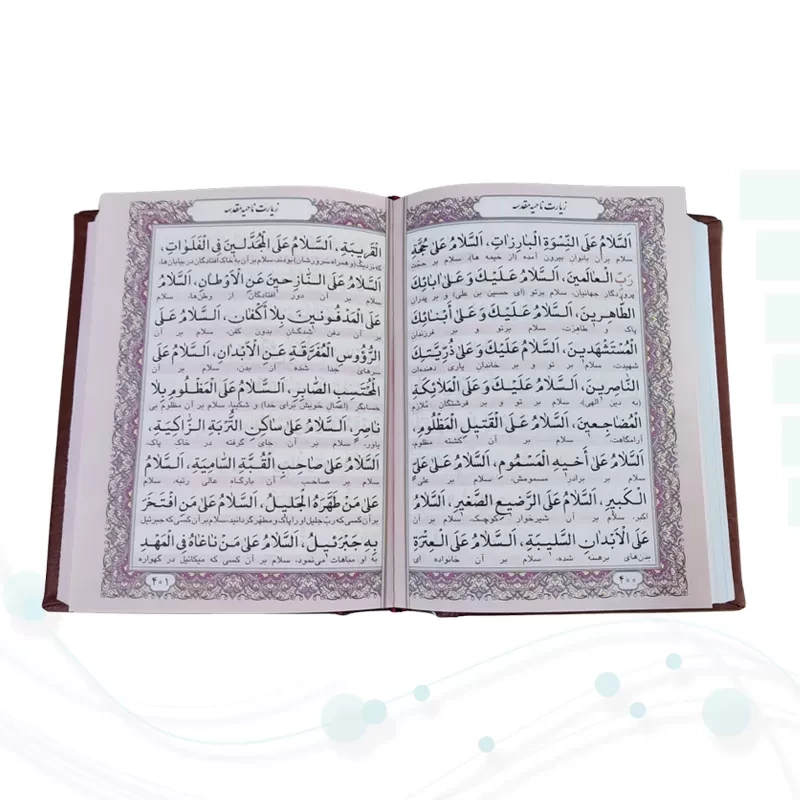 زیارت ناحیه مقدسه
اَلسَّلامُ عَلَى النِّسْوَةِ الْبارِزاتِ، اَلسَّلامُ عَلى حُجَّةِ
سلام برآن بانوان بیرون آمده (از خیمه ها)، سلام بر حجت
رَبِّ الْعالَمينَ، اَلسَّلامُ عَلَيْكَ وَ عَلى ابائِكَ
پروردگار جهانیان، سلام برتو (ای حسین بن علی) و بر پدران
الطّاهِرينَ، اَلسَّلامُ عَلَيْكَ وَ عَلى أَبْنائِكَ
پاک و طاهرت، سلام برتو و بر فرزندان
الْمُسْتَشْهَدينَ، اَلسَّلامُ عَلَيْكَ وَ عَلى ذُرِّيَّتِكَ
شهیدت، سلام بر تو و بر خاندان یاری دهنده‌ات
النّاصِرينَ، اَلسَّلامُ عَلَيْكَ وَ عَلَى الْمَلائِكَةِ
(به دین الهی)، سلام بر تو و بر فرشتگان مُلازم
الْمُضاجِعينَ، اَلسَّلامُ عَلَى الْقَتيلِ الْمَظْلُومِ،
آرامگاهت، سلام بر آن کشته مظلوم،
اَلسَّلامُ عَلى أَخيهِ الْمَسْمُومِ، اَلسَّلامُ عَلى عَلِىٍّ
سلام بر برادر مسمومش، سلام بر علی
الْكَبيرِ، اَلسَّلامُ عَلَى الرَّضيعِ الصَّغيرِ، اَلسَّلامُ
اکبر، سلام بر آن شیرخوار کوچک، سلام بر آن
عَلَى الْأَبْدانِ السَّليبَةِ، اَلسَّلامُ عَلَى الْعِتْرَةِ
بدن‌های برهنه شده، سلام بر آن خانواده ای
۴۰۰
زیارت ناحیه مقدسه
الْقَريبَةِ، اَلسَّلامُ عَلَى الْمُجَدَّلينَ فِى الْفَلَواتِ،
که نزدیک (و همراه سرورشان) بودند، سلام بر آن به خاک افتادگان در بیابان‌ها،
اَلسَّلامُ عَلَى النّازِحينَ عَنِ الْأَوْطانِ، اَلسَّلامُ
سلام بر آن دور افتادگان از وطن‌ها، سلام
عَلَى الْمَدْفُونينَ بِلا أَكْفانٍ، اَلسَّلامُ عَلَى
بر آن دفن شدگان بدون کفن، سلام بر آن
الرُّؤُوسِ الْمُفَرَّقَةِ عَنِ الْأَبْدانِ، اَلسَّلامُ عَلَى
سرهای جدا شده از بدن، سلام بر آن
الْمُحْتَسِبِ الصّابِرِ، اَلسَّلامُ عَلَى الْمَظْلُومِ بِلا
حسابگر (اعمال خویش برای خدا) و شکیبا، سلام بر آن مظلوم بی
ناصِرٍ، اَلسَّلامُ عَلى ساكِنِ التُّرْبَةِ الزّاكِيَةِ،
یاور، سلام بر آن جای گرفته در خاک پاک،
اَلسَّلامُ عَلى صاحِبِ الْقُبَّةِ السّامِيَةِ، اَلسَّلامُ
سلام بر صاحب آن بارگاه عالی رتبه، سلام
عَلى مَنْ طَهَّرَهُ الْجَليلُ، اَلسَّلامُ عَلى مَنِ افْتَخَرَ
بر آن کسی که رب جلیل او را پاک و مطهر گردانید، سلام بر آن کسی که جبرئیل
بِهِ جَبْرَئيلُ، اَلسَّلامُ عَلى مَنْ ناغاهُ فِى الْمَهْدِ
به او مباهات می‌نمود، سلام بر آن کسی که میکائیل در گهواره
۴۰۱